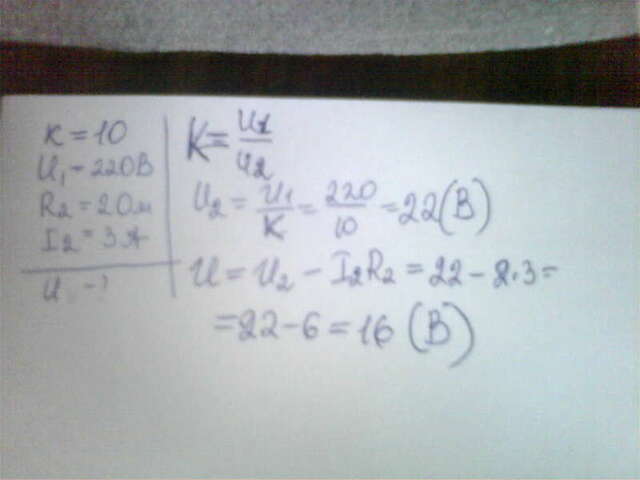 к = 10
U₁ - 220 В
R₂ = 2 Ом
I₂ = 3 А
U - ?
K = U₁/U₂
U₂ = U₁/K = 220/10 = 22 (В)
U = U₂ - I₂R₂ = 22 - 2·3 =
= 22 - 6 = 16 (В)